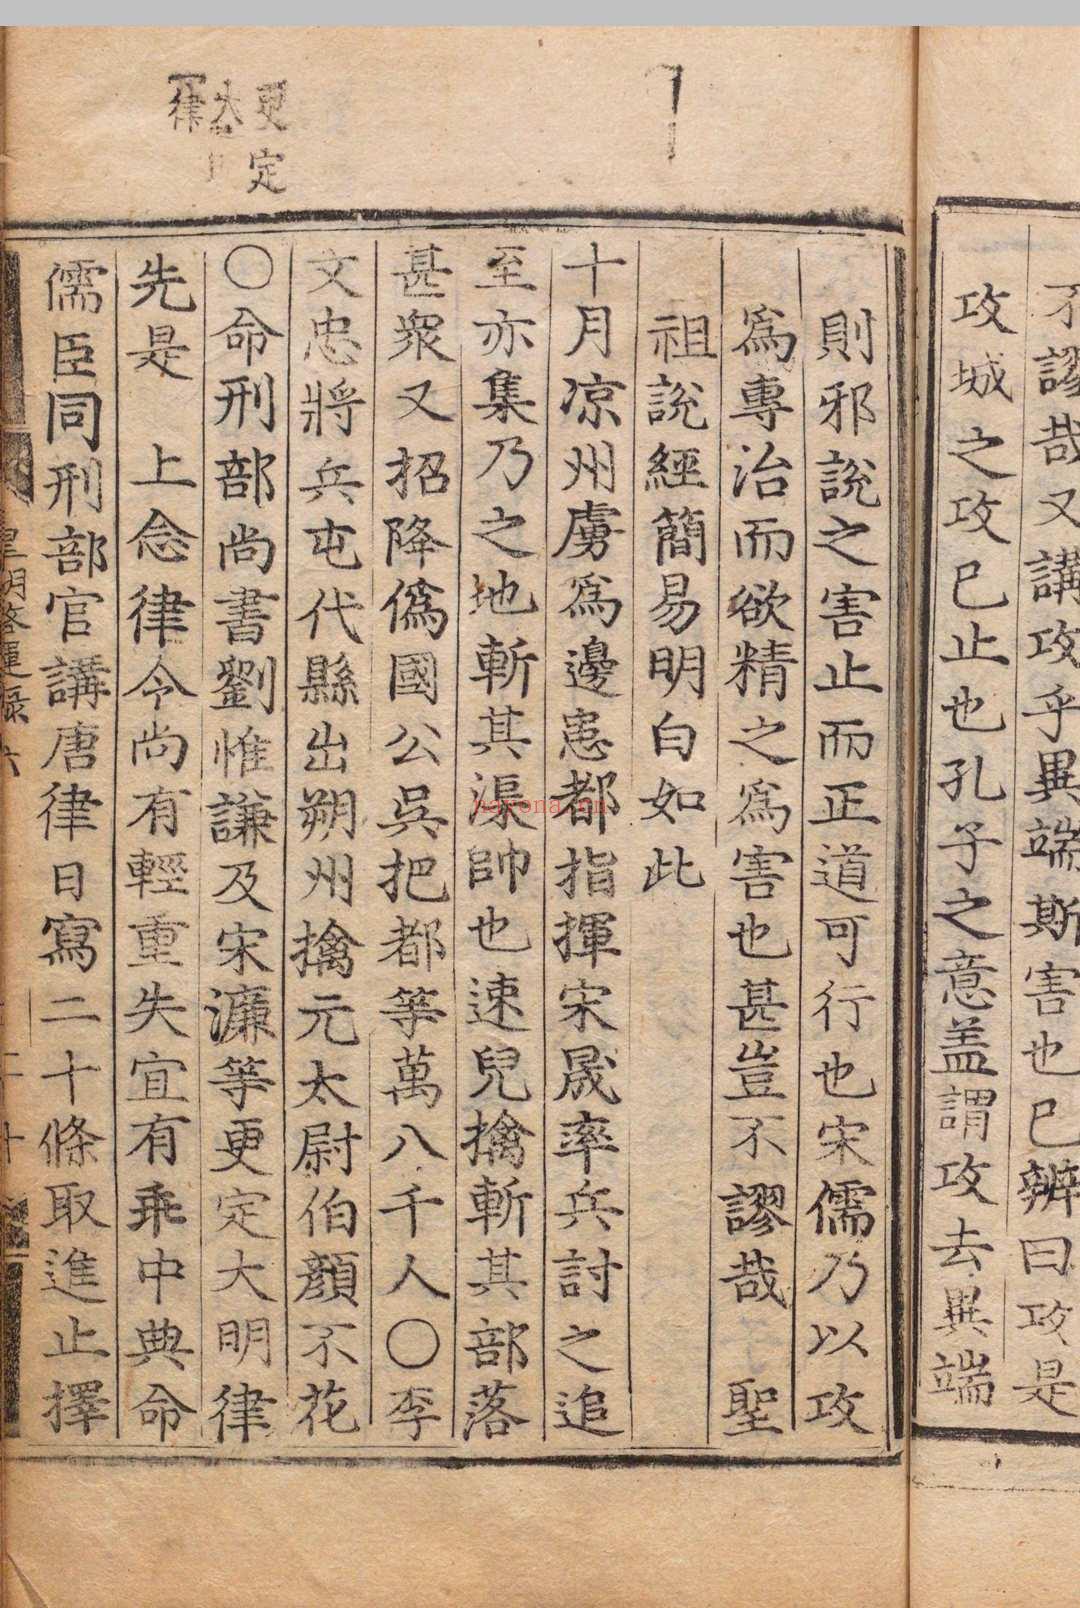 不謬哉又講攻乎異端斯害也已辨曰攻是
攻城之攻已止也孔子之意盖謂攻去異端
則邪說之害止而正道可行也宋儒乃以攻
爲專治而欲精之爲害也甚豈不謬哉 聖
祖說經簡易明白如此
十月凉州虜爲邊患都指揮宋晟率兵討之追
至亦集乃之地斬其渠帥也速兒擒斬其部落
甚衆又招降僞國公吳把都等萬八千人〇李
文忠將兵屯代縣出朔州擒元太尉伯顏不花
〇命刑部尚書劉惟謙及宋濂等更定大明律
先是 上念律令尚有輕重失宜有乖中典命
儒臣同刑部官講唐律日寫二十條取進止擇
更定
大明
律
皇明啓運錄 六
二十